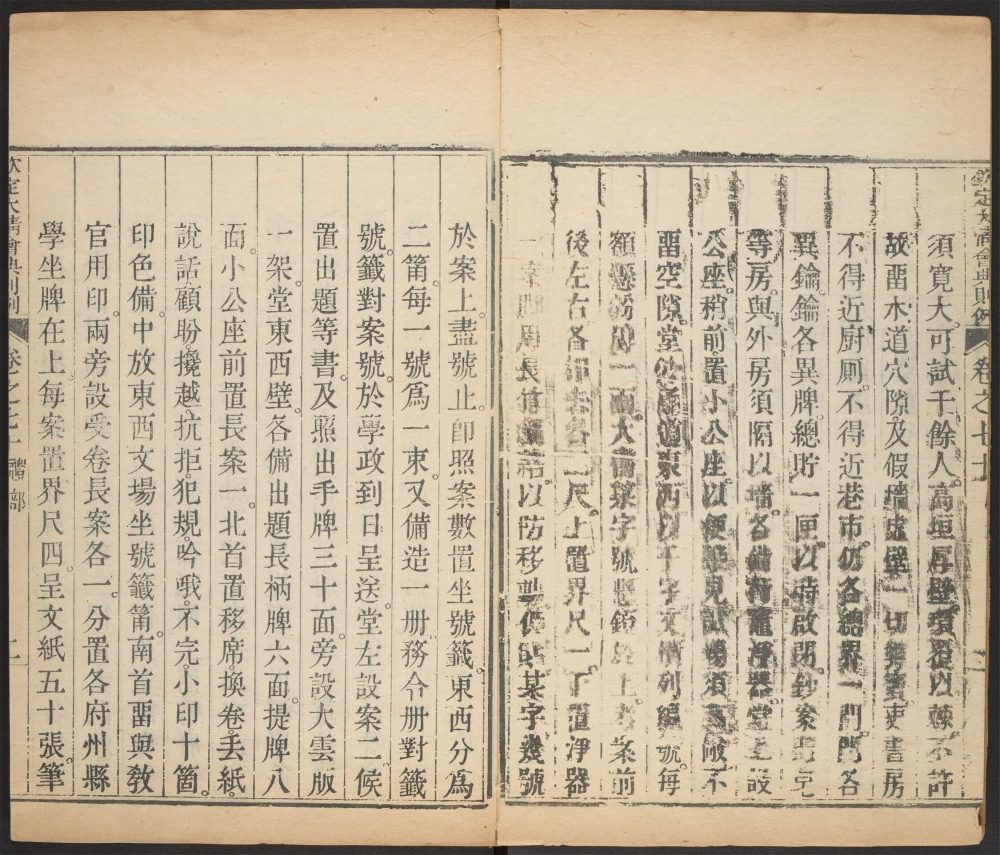 欽定大清會典則例 卷之七十
須寬大。可試千餘人。高垣厚壁。環覆以棘。不許
故畱水道穴隙。及假墻虛壁。一切吏書房
不得近廚厠。不得近巷市。仍各總界一門。門各
異鑰。鑰各異牌。總貯一匣。以時啟閉。鈔案
等房。與外房須隔以墻。各備器。堂上設
公座。稍前置小公座。以便見試場須敞。不
畱空隙。堂東西以千字文列編號。每
額懸一面。大字號上。考案前
後左右各二尺。上置界尺一。下置淨器
一案脚周長以防移動。某字幾號
於案上。盡號止。卽照案數置坐號籤。東西分爲
二筩。每一號爲一束。又備造一册。務令册對籤
號。籤對案號。於學政到日呈送。堂左設案二。候
置出題等書。及照出手牌三十面。旁設大雲版
一架。堂東西壁。各備出題長柄牌六面。提牌八
面。小公座前置長案一。北首置移席。換卷。丟紙。
說話。顧盼。攙越。抗拒。犯規。吟哦。不完。小印十箇。
印色備。中放東西文場坐號籤筩。南首畱與敎
官用印。兩旁設受卷長案各一。分置各府州縣
學坐牌在上。每案置界尺四。呈文紙五十張。筆
欽定大清會典則例 卷之七十 禮部 二